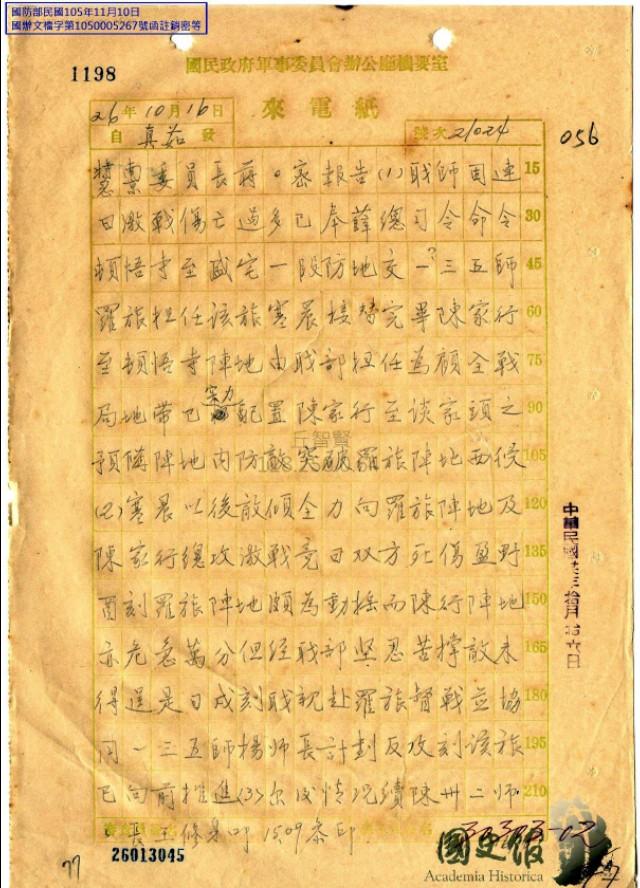 國防部民國105年11月10日
國辦文檔字第1050005267號函註銷密等
1198
國民政府軍事委員會辦公廳機要室
26年10月16日
來電紙
自 真茹 發
號次 21024
056
委員長蔣。密報告(1)職師因連 15
日激戰傷亡過多已奉薛總司令命令 30
頓悟寺至盛宅一段防地交一三五師 45
羅旅担任該旅寒晨接替完畢陳家行 60
至頓悟寺陣地由職部担任為顧全戰 75
局地帶已配置陳家行至談家頭之 90
實力
預隊陣地內防敵突破羅旅陣地西侵 105
丘智賢
(2)寒晨以後敵傾全力向羅旅陣地及 120
陳家行總攻激戰竟日双方死傷盈野 135
酉刻羅旅陣地頗為動搖而陳行陣地 150
亦危急萬分但經職部坚忍苦撑敵未 165
得逞是日戌刻職親赴羅旅督戰並協 180
同一三五師楊師長計劃反攻刻該旅 195
已向前推進(3)尔後情况續陳卅二師 210
長王修身叩 1509 参印
中華民國廿六年拾月拾六日
77
26013045
國史館
Academia Historica